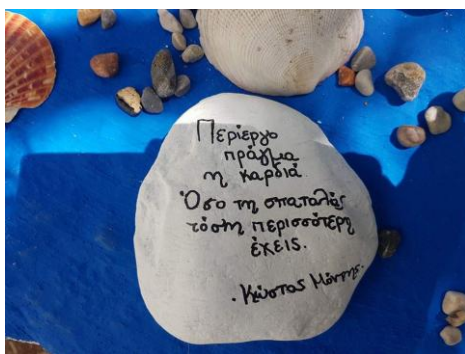 Περίεργο
πράγμα
η καρδιά
Όσο τη σπαταλάς
τόση περισσότερη
έχεις.
. Κώστας Μόντης.